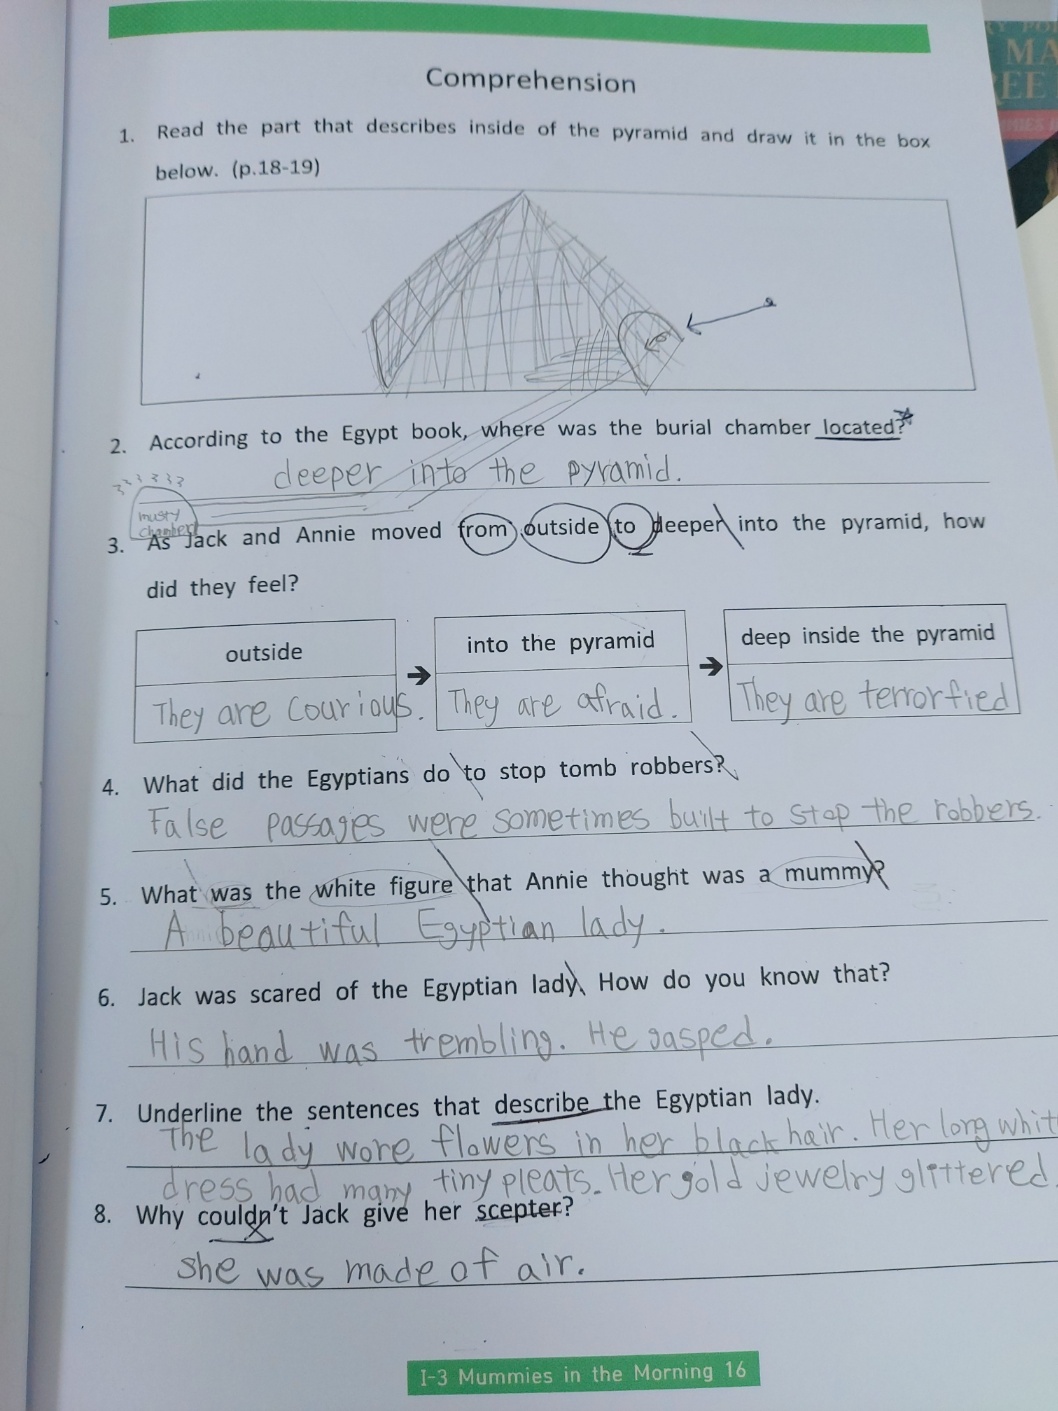 Comprehension
1. Read the part that describes inside of the pyramid and draw it in the box
below. (p.18-19)
2. According to the Egypt book, where was the burial chamber located?
deeper into the pyramid.
musty
chamber
3. As Jack and Annie moved from outside to deeper into the pyramid, how
did they feel?
outside
into the pyramid
deep inside the pyramid
They are courious.
They are afraid.
They are terrorfied
4. What did the Egyptians do to stop tomb robbers?
False passages were sometimes built to stop the robbers.
5. What was the white figure that Annie thought was a mummy?
A beautiful Egyptian lady.
6. Jack was scared of the Egyptian lady. How do you know that?
His hand was trembling. He gasped.
7. Underline the sentences that describe the Egyptian lady.
The lady wore flowers in her black hair. Her long whit
dress had many tiny pleats. Her gold jewelry glittered.
8. Why couldn't Jack give her scepter?
she was made of air.
I-3 Mummies in the Morning 16
MA
EE